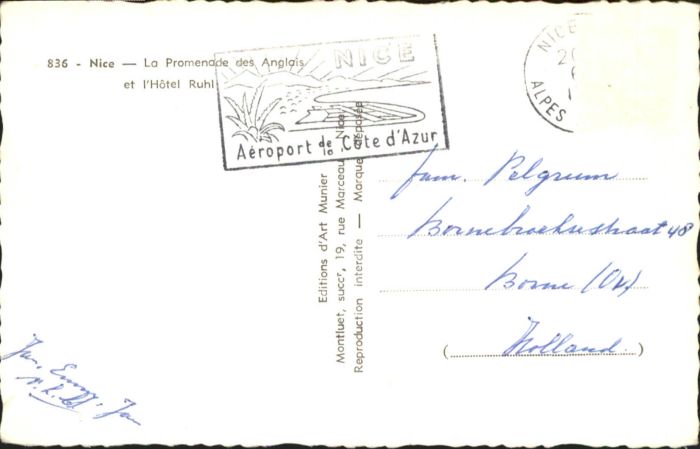 836 - Nice — La Promenade des Anglais
et l'Hôtel Ruhl
NICE
Aéroport de la Côte d'Azur
NICE
ALPES
Editions d'Art Munier
Montluet, succʳ, 19, rue Marceau, Nice
Reproduction interdite — Marque déposée
Fam. Pelgrum
Bornebroeksestraat 48
Borne (Ov)
(Holland.)
Jan